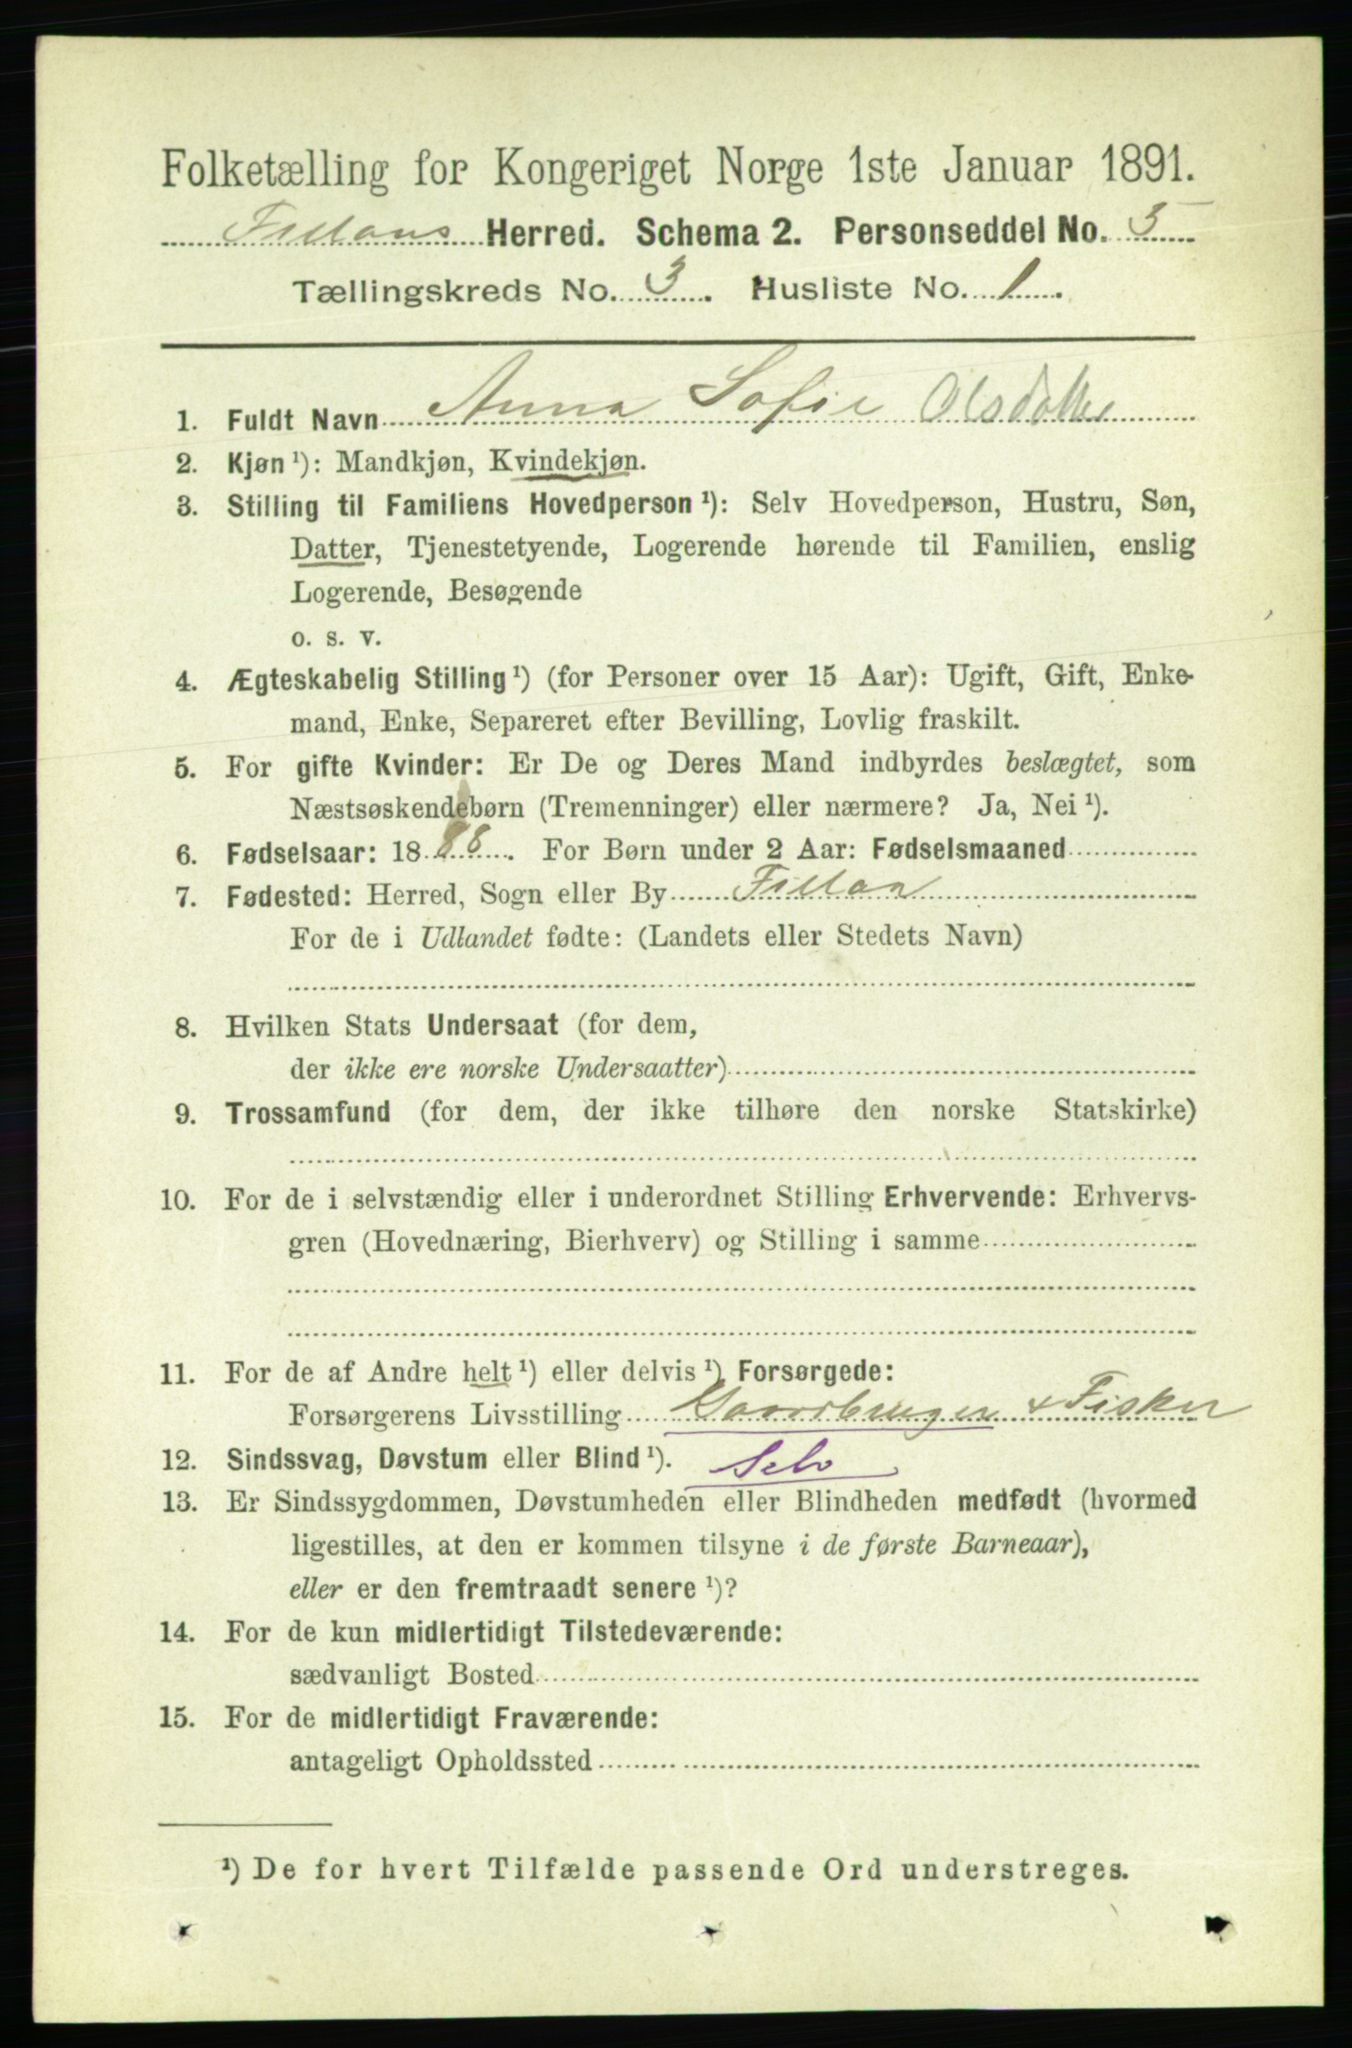 Folketælling for Kongeriget Norge 1ste Januar 1891.
Fillans Herred. Schema 2. Personseddel No. 5
Tællingskreds No. 3. Husliste No. 1.
1. Fuldt Navn Anna Sofie Olsdatter
2. Kjøn ¹): Mandkjøn, Kvindekjøn.
3. Stilling til Familiens Hovedperson ¹): Selv Hovedperson, Hustru, Søn,
Datter, Tjenestetyende, Logerende hørende til Familien, enslig
Logerende, Besøgende
o. s. v.
4. Ægteskabelig Stilling ¹) (for Personer over 15 Aar): Ugift, Gift, Enke-
mand, Enke, Separeret efter Bevilling, Lovlig fraskilt.
5. For gifte Kvinder: Er De og Deres Mand indbyrdes beslægtet, som
Næstsøskendebørn (Tremenninger) eller nærmere? Ja, Nei ¹).
6. Fødselsaar: 1888. For Børn under 2 Aar: Fødselsmaaned
7. Fødested: Herred, Sogn eller By Fillan
For de i Udlandet fødte: (Landets eller Stedets Navn)
8. Hvilken Stats Undersaat (for dem,
der ikke ere norske Undersaatter)
9. Trossamfund (for dem, der ikke tilhøre den norske Statskirke)
10. For de i selvstændig eller i underordnet Stilling Erhvervende: Erhvervs-
gren (Hovednæring, Bierhverv) og Stilling i samme
11. For de af Andre helt ¹) eller delvis ¹) Forsørgede:
Forsørgerens Livsstilling Gaardbruger & Fisker
12. Sindssvag, Døvstum eller Blind ¹). Selv
13. Er Sindssygdommen, Døvstumheden eller Blindheden medfødt (hvormed
ligestilles, at den er kommen tilsyne i de første Barneaar),
eller er den fremtraadt senere ¹)?
14. For de kun midlertidigt Tilstedeværende:
sædvanligt Bosted
15. For de midlertidigt Fraværende:
antageligt Opholdssted
¹) De for hvert Tilfælde passende Ord understreges.